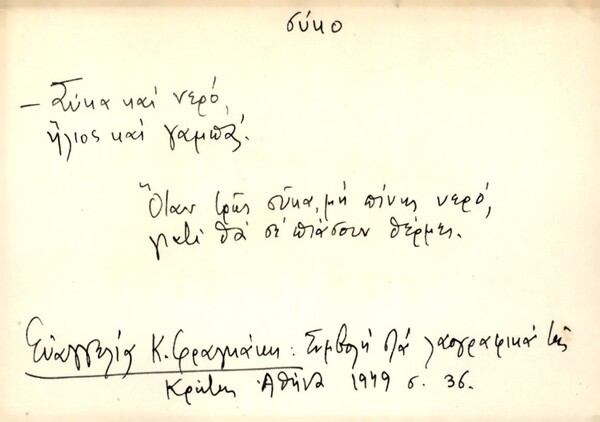 σύκο
— Σύκα καὶ νερό,
ἥλιος καὶ γαμπᾶ.
Ὅταν τρῶς σῦκα, μή πίνης νερό,
γιατί θά σέ πιάσουν θέρμες.
Εὐαγγελία Κ. Φραγκάκι: Συμβολή στά λαογραφικά τῆς
Κρήτης Ἀθήνα 1949 σ. 36.